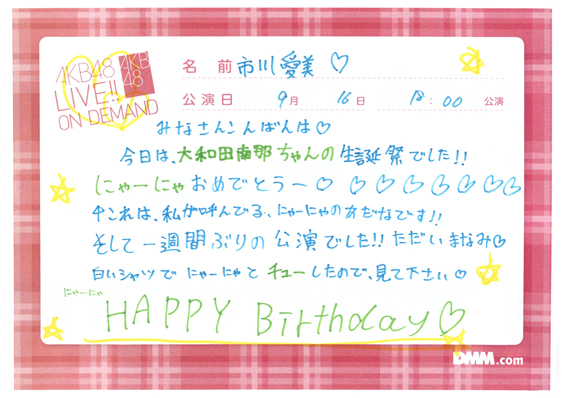 AKB48
LIVE!!
ON DEMAND
AKB
48
名 前 市川愛美 ♡
公演日 9月 16日 18:00 公演
みなさんこんばんは♡
今日は、大和田南那ちゃんの生誕祭でした!!
にゃーにゃおめでとうー♡ ♡♡♡♡♡♡♡
↑これは、私が呼んでる、にゃーにゃのあだなです!!
そして一週間ぶりの公演でした!! ただいまなみ♡
白いシャツでにゃーにゃとチューしたので、見て下さい♡
にゃーにゃ
HAPPY Birthday♡
DMM.com